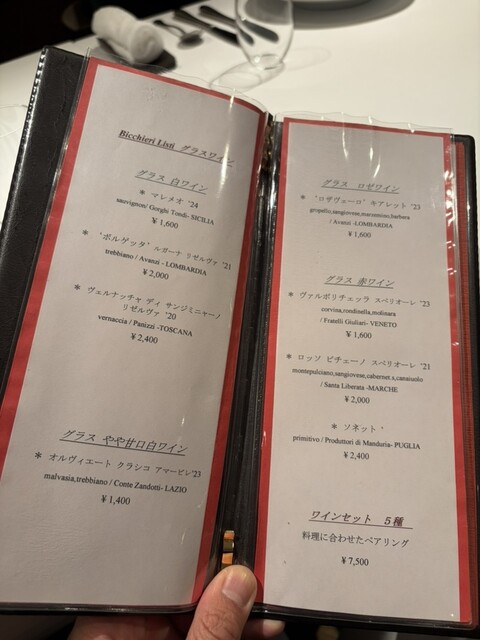 Bicchieri Listi グラスワイン
グラス 白ワイン
* マレメオ '24
sauvignon/ Gorghi Tondi- SICILIA
¥ 1,600
* 'ボルゲッタ' ルガーナ リゼルヴァ '21
trebbiano / Avanzi - LOMBARDIA
¥ 2,000
* ヴェルナッチャ ディ サンジミニャーノ
リゼルヴァ '20
vernaccia / Panizzi -TOSCANA
¥ 2,400
グラス やや甘口白ワイン
* オルヴィエート クラシコ アマービレ'23
malvasia,trebbiano / Conte Zandotti- LAZIO
¥ 1,400
グラス ロゼワイン
* 'ロザヴェーロ' キアレット '23
gropello,sangiovese,marzemino,barbera
/ Avanzi -LOMBARDIA
¥ 1,600
グラス 赤ワイン
* ヴァルポリチェッラ スペリオーレ '23
corvina,rondinella,molinara
/ Fratelli Giuliari- VENETO
¥ 1,600
* ロッソ ピチェーノ スペリオーレ '21
montepulciano,sangiovese,cabernet s,canaiuolo
/ Santa Liberata -MARCHE
¥ 2,000
* ソネット '
primitivo / Produttori di Manduria- PUGLIA
¥ 2,400
ワインセット 5種
料理に合わせたペアリング
¥ 7,500